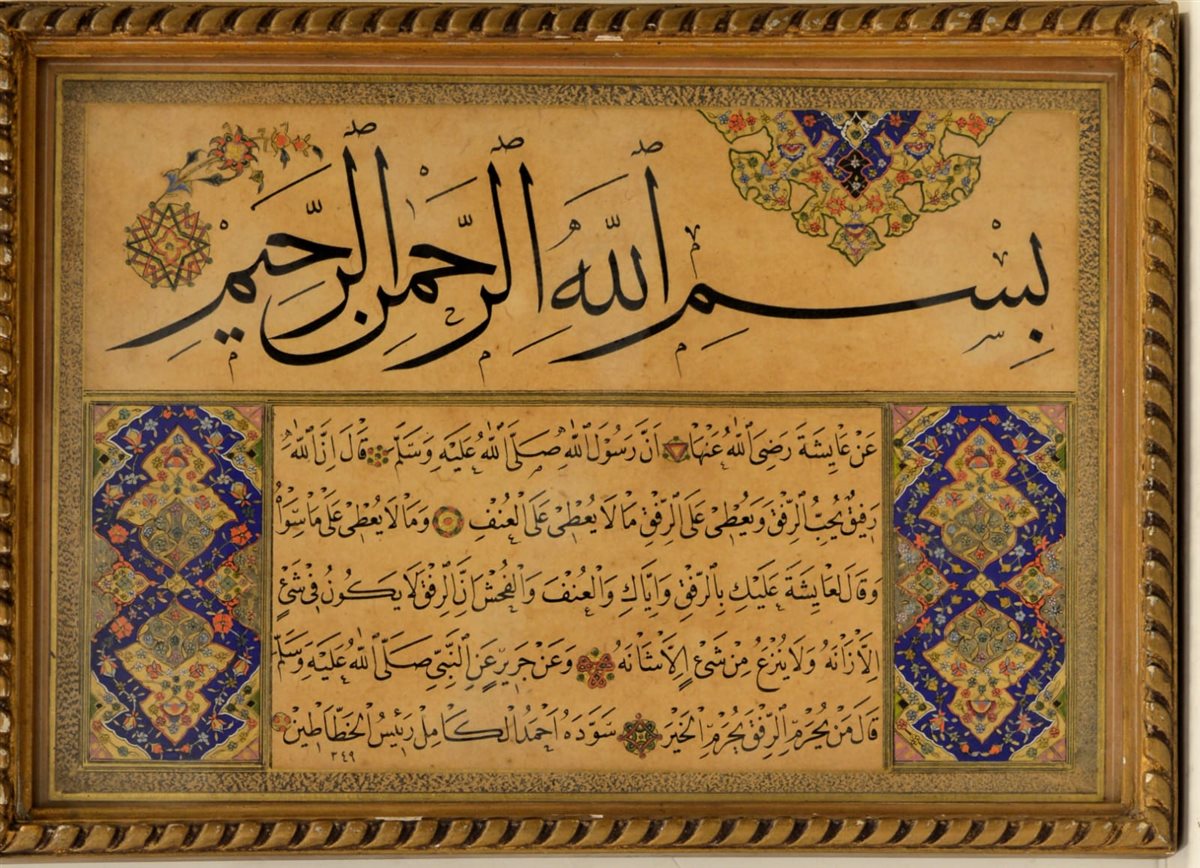 بِسْمِ ٱللَّهِ ٱلرَّحْمٰنِ ٱلرَّحِيمِ
عَنْ عَايِشَةَ رَضِىَ ٱللّٰهُ عَنْهَا اَنَّ رَسُولَ ٱللّٰهِ صَلَّى ٱللّٰهُ عَلَيْهِ وَسَلَّمَ قَالَ اِنَّ ٱللّٰهَ
رَفِيقٌ يُحِبُّ ٱلرِّفْقَ وَيُعْطِى عَلَى ٱلرِّفْقِ مَا لَا يُعْطِى عَلَى ٱلْعُنْفِ وَمَا لَا يُعْطِى عَلَى مَا سِوَاهُ
وَقَالَ لِعَايِشَةَ عَلَيْكِ بِالرِّفْقِ وَاِيَّاكِ وَالْعُنْفَ وَالْفُحْشَ اِنَّ ٱلرِّفْقَ لَا يَكُونُ فِى شَىْءٍ
اِلَّا زَانَهُ وَلَا يُنْزَعُ مِنْ شَىْءٍ اِلَّا شَانَهُ وَعَنْ جَرِيرٍ عَنِ ٱلنَّبِىِّ صَلَّى ٱللّٰهُ عَلَيْهِ وَسَلَّمَ
قَالَ مَنْ يُحْرَمِ ٱلرِّفْقَ يُحْرَمِ ٱلْخَيْرَ سَوَّدَهُ اَحْمَدُ ٱلْكَامِلْ رَئِيسُ ٱلْخَطَّاطِينْ
٣٤٩